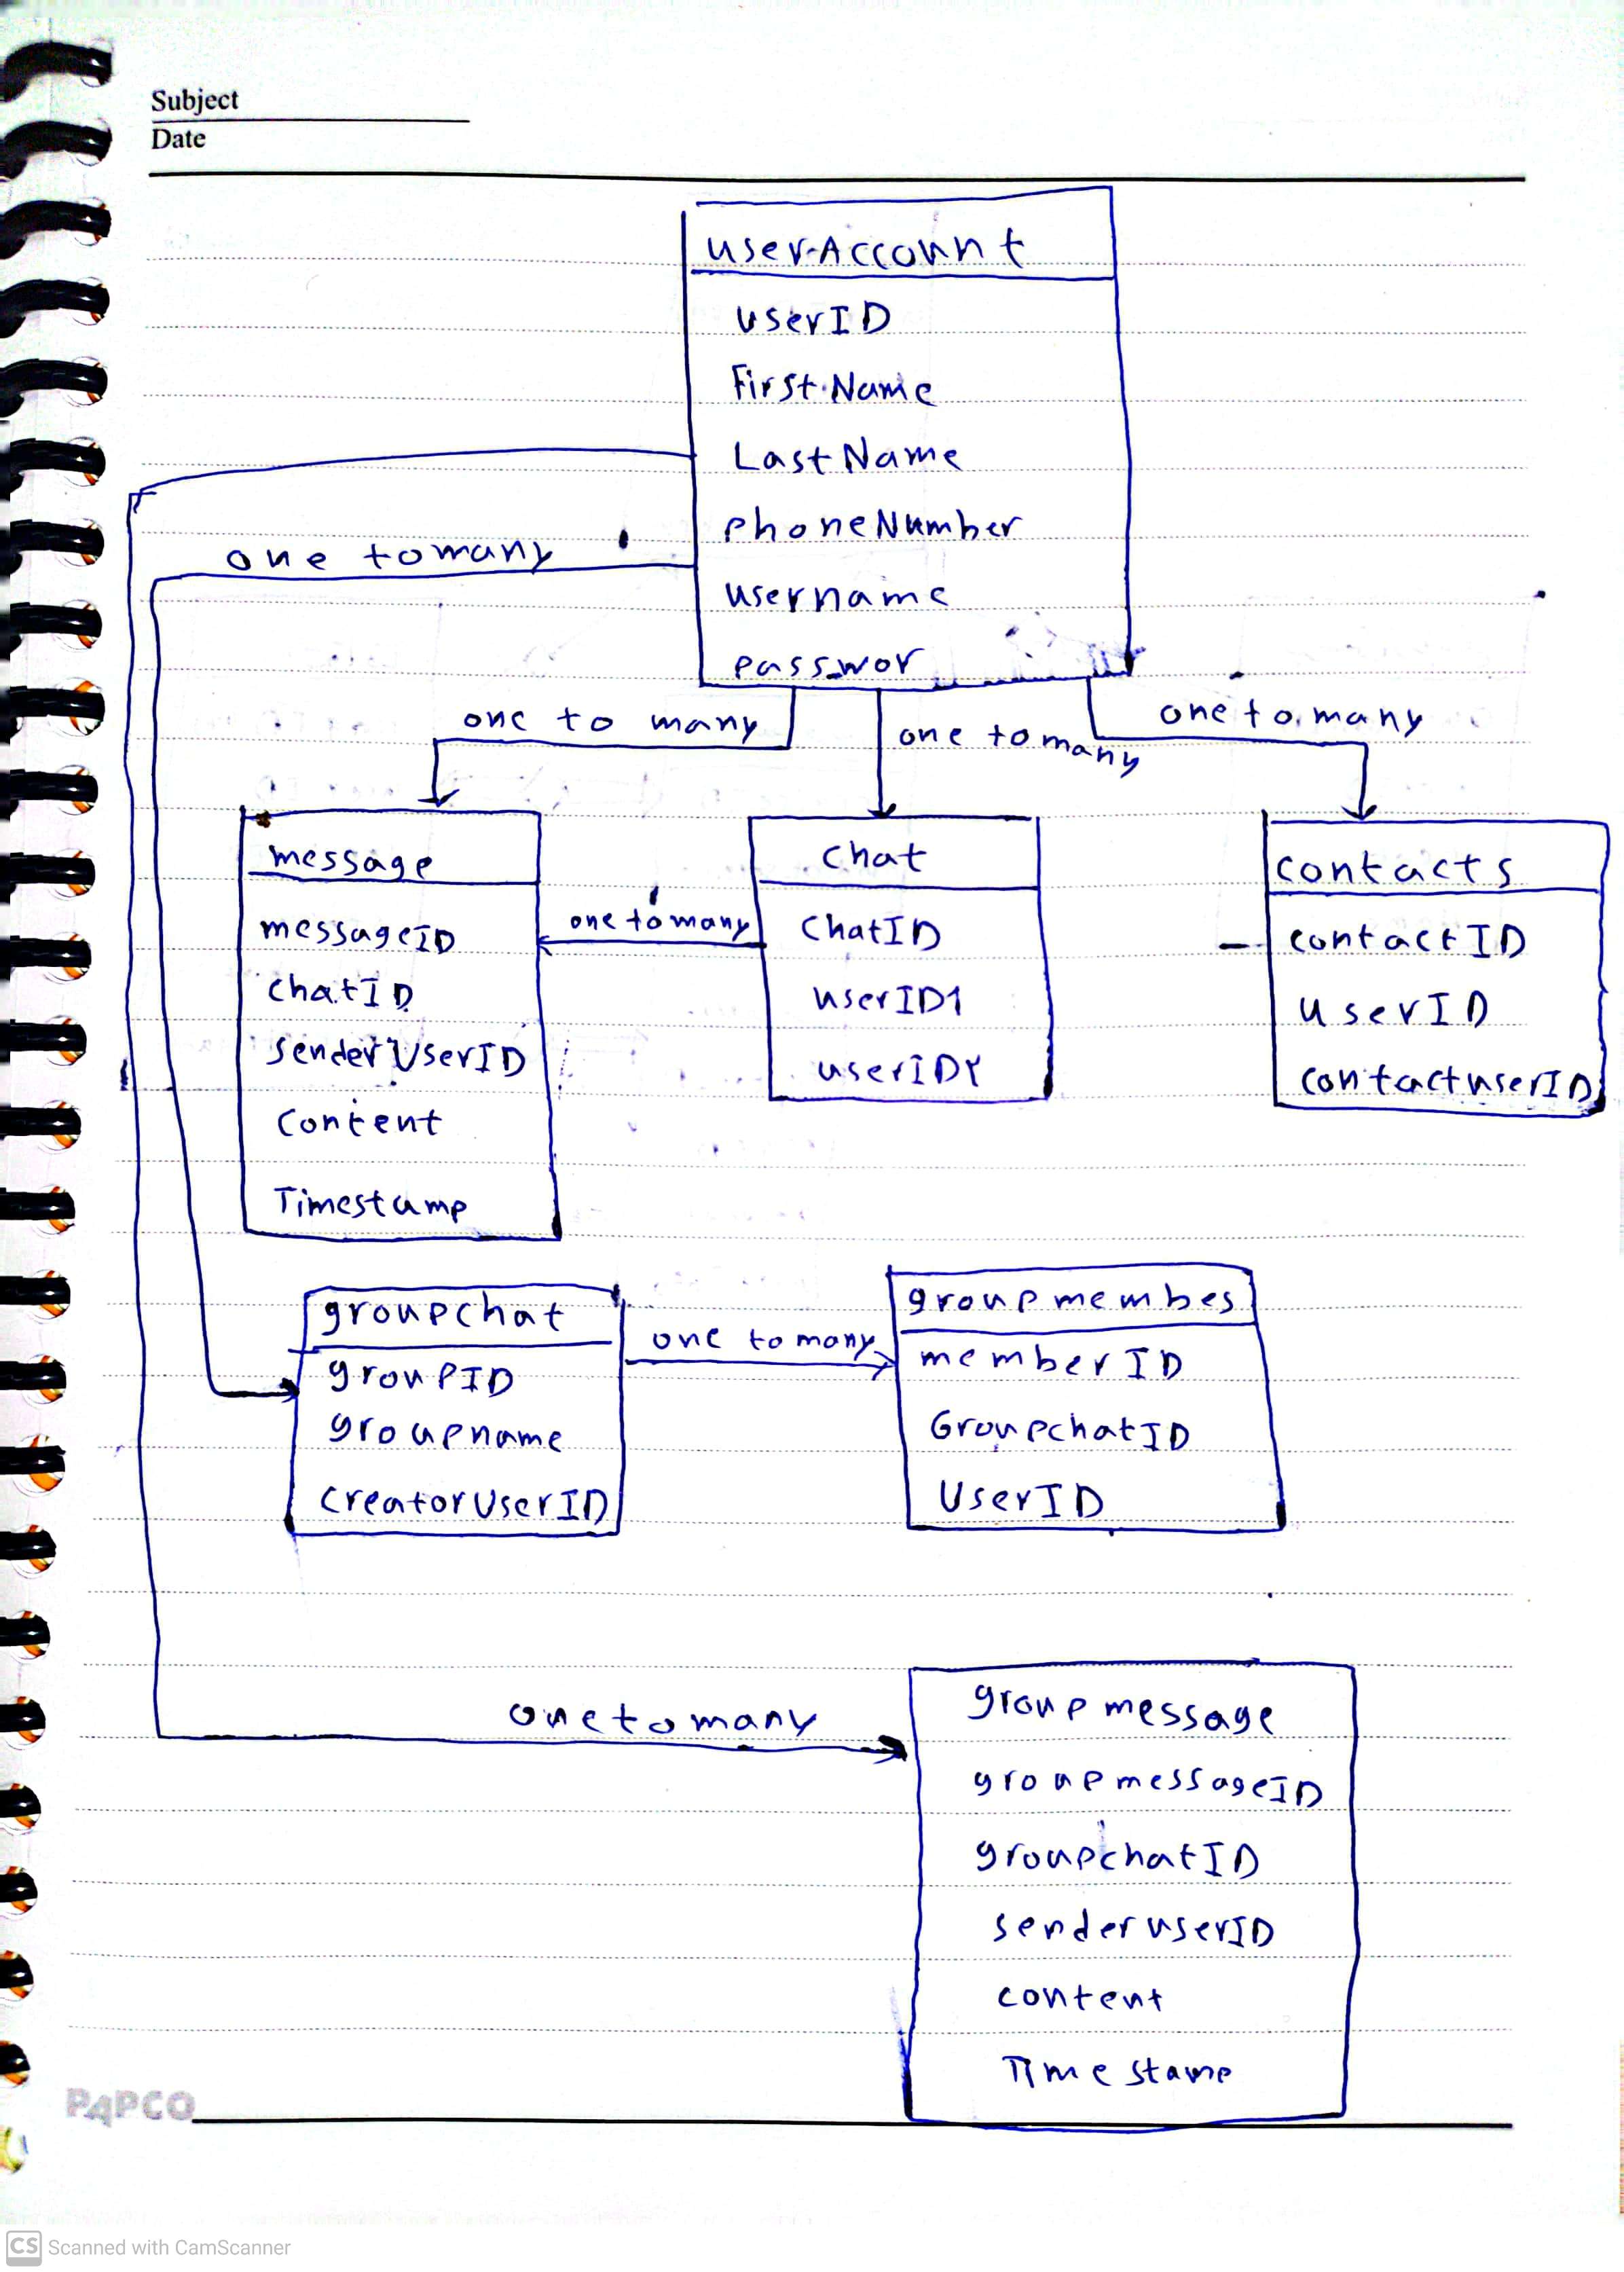 Subject
Date
userAccount
userID
FirstName
LastName
phoneNumber
username
passwor
one to many
one to many
one to many
one to many
message
messageID
chatID
senderUserID
Content
Timestamp
one to many
chat
ChatID
userID1
userID۲
contacts
contactID
userID
contactuserID
groupchat
groupID
groupname
creatorUserID
one to many
groupmembes
memberID
GroupchatID
UserID
one to many
groupmessage
groupmessageID
groupchatID
senderuserID
content
Timestamp
PAPCO
CS Scanned with CamScanner